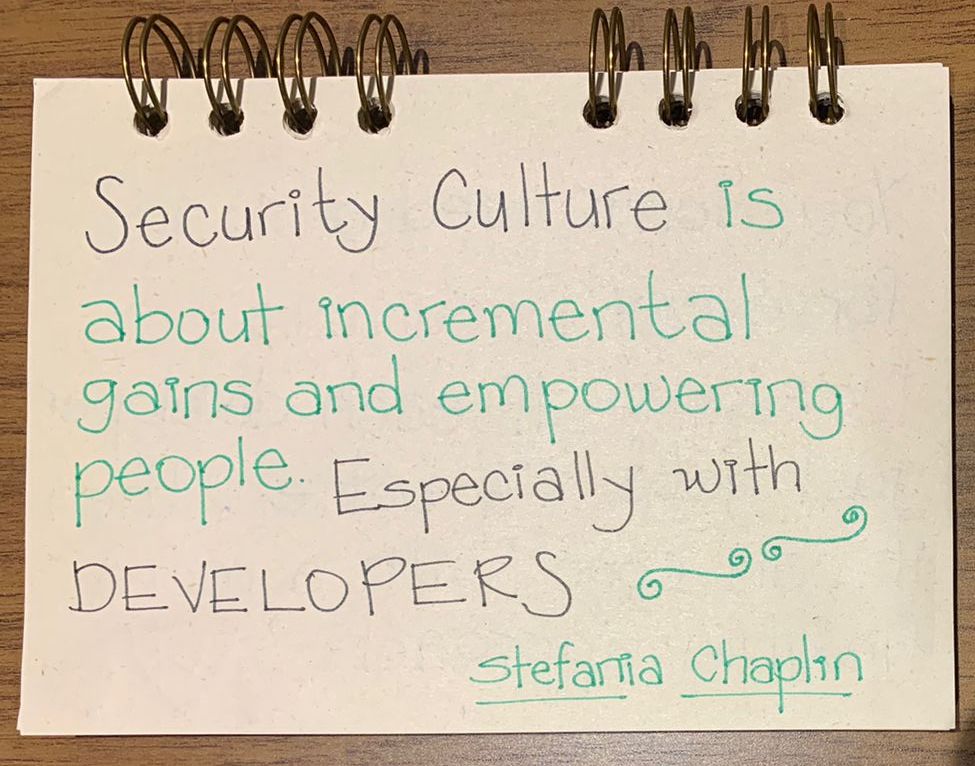 Security Culture is
about incremental
gains and empowering
people. Especially with
DEVELOPERS
Stefania Chaplin